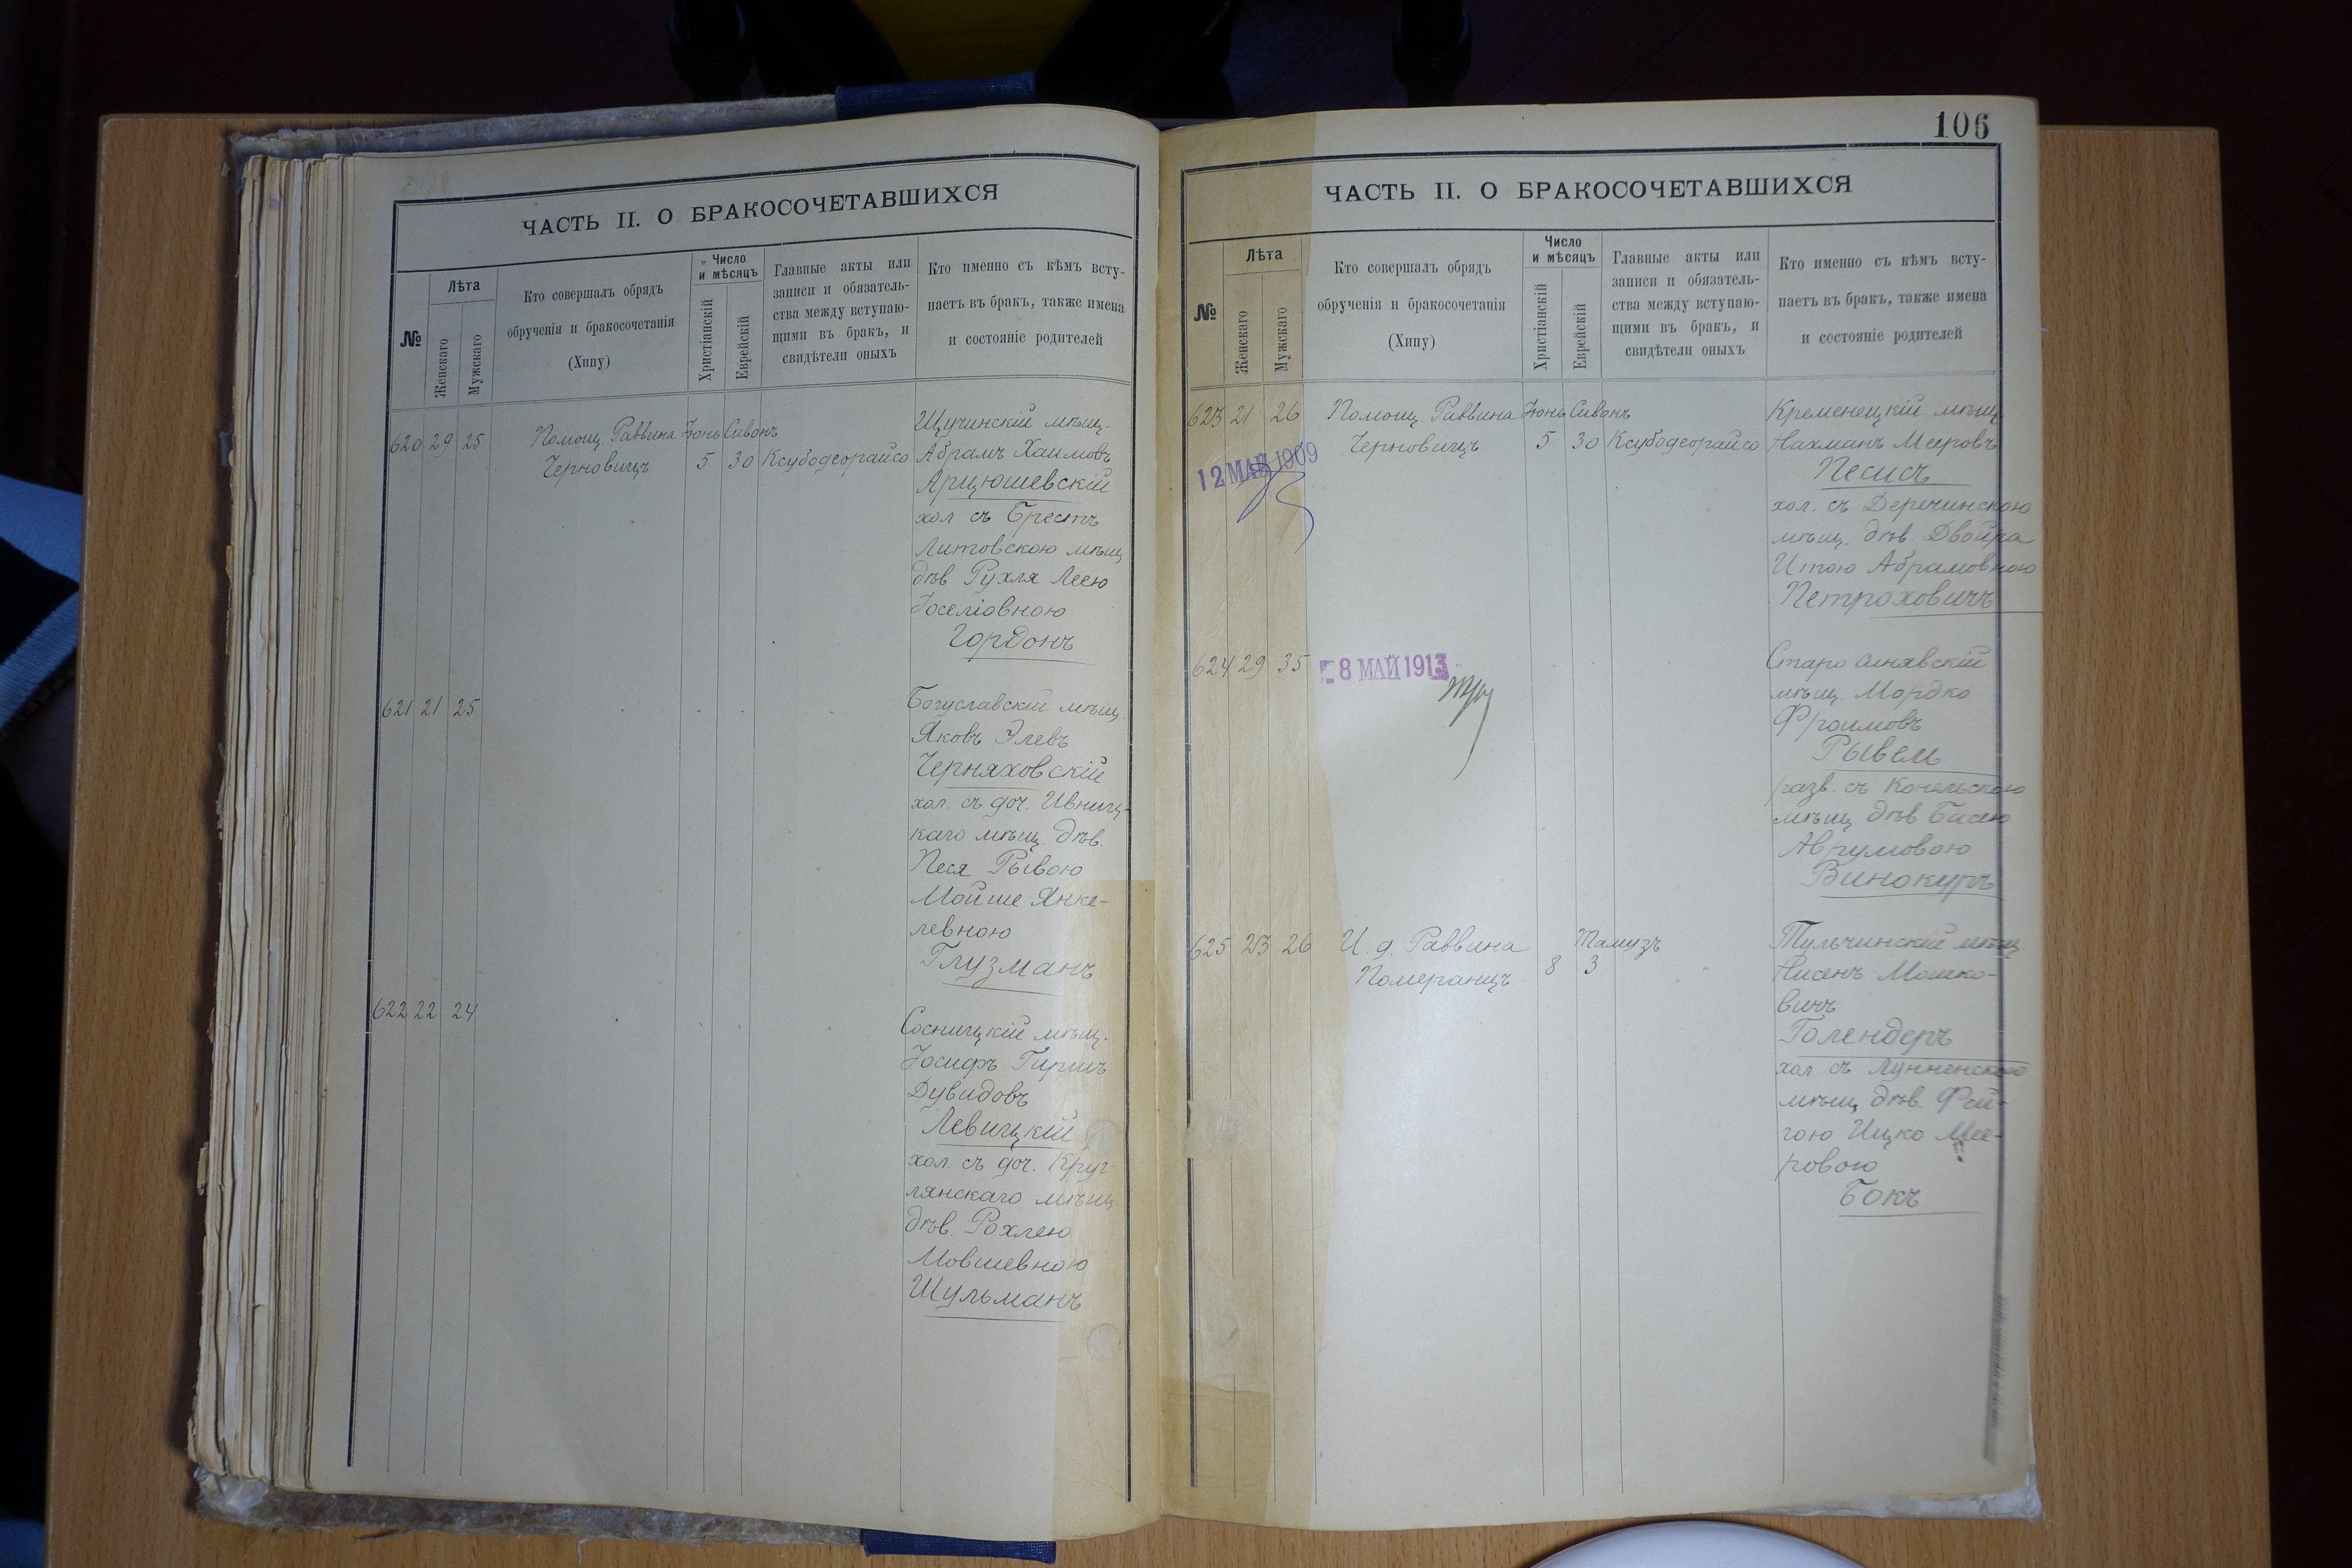 ЧАСТЬ II. О БРАКОСОЧЕТАВШИХСЯ
№
Лѣта
Женскаго
Мужскаго
Кто совершалъ обрядъ
обрученія и бракосочетанія
(Хипу)
Число
и мѣсяцъ
Христіанскій
Еврейскій
Главные акты или
записи и обязатель-
ства между вступаю-
щими въ бракъ, и
свидѣтели оныхъ
Кто именно съ кѣмъ всту-
паетъ въ бракъ, также имена
и состояніе родителей
620 29 25
Помощ. Раввина
Черновицъ
Іюнь Сиванъ
5 30
Ксубодеорайсо
Щучинскій мѣщ.
Абрамъ Хаимовъ
Арцюшевскій
хол. съ Брестъ
Литовскою мѣщ
дѣв Рухля Леею
Іоселіовною
Гордонъ
621 21 25
Богуславскій мѣщ.
Яковъ Элевъ
Черняховскій
хол. съ доч. Ивниц-
каго мѣщ. дѣв.
Песя Рывою
Мойше Янке-
левною
Глузманъ
622 22 24
Сосницкій мѣщ.
Іосифъ Гиршъ
Дувидовъ
Левицкій
хол. съ доч. Круг-
лянскаго мѣщ.
дѣв. Рохлею
Мовшевною
Шульманъ
106
ЧАСТЬ II. О БРАКОСОЧЕТАВШИХСЯ
№
Лѣта
Женскаго
Мужскаго
Кто совершалъ обрядъ
обрученія и бракосочетанія
(Хипу)
Число
и мѣсяцъ
Христіанскій
Еврейскій
Главные акты или
записи и обязатель-
ства между вступаю-
щими въ бракъ, и
свидѣтели оныхъ
Кто именно съ кѣмъ всту-
паетъ въ бракъ, также имена
и состояніе родителей
623 21 26
12 МАЙ 1909
Помощ. Раввина
Черновицъ
Іюнь Сиванъ
5 30
Ксубодеорайсо
Кременецкій мѣщ
Нахманъ Мееровъ
Песисъ
хол. съ Деречинскою
мѣщ. дѣв. Двойра
Итою Абрамовною
Петроховичъ
624 29 35
8 МАЙ 1913
Старо синявскій
мѣщ. Мордко
Фроимовъ
Рывель
разв. съ
мѣщ. дѣв Басею
Аврумовою
Винокуръ
625 23 26
И. д. Раввина
Померанцъ
Тамузъ
8 3
Тульчинскій мѣщ
Нисенъ Мошко-
вичъ
Голендеръ
хол. съ Лунненскою
мѣщ дѣв. Фей-
гою Ицко Мее-
ровою
Бокъ